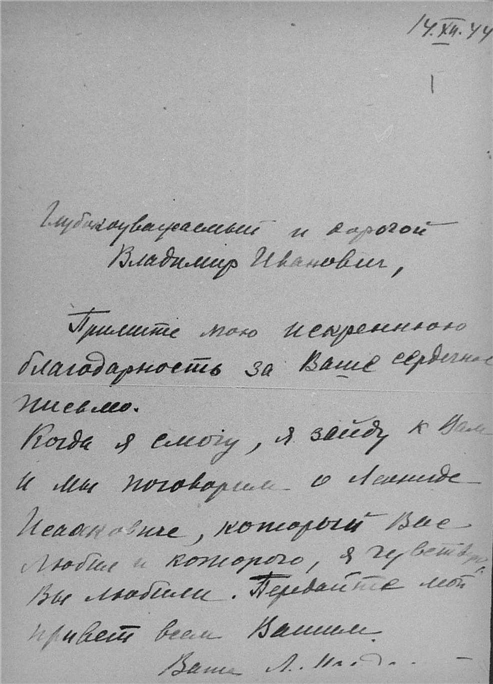 14.XII.44
I
Глубокоуважаемый и дорогой
Владимир Иванович,
Примите мою искреннюю
благодарность за Ваше сердечное
письмо.
Когда я смогу, я зайду к Вам
и мы поговорим о Леониде
Исааковиче, который Вас
любил и которого, я чувствую,
Вы любили. Передайте мой
привет всем Вашим.
Ваша Л.